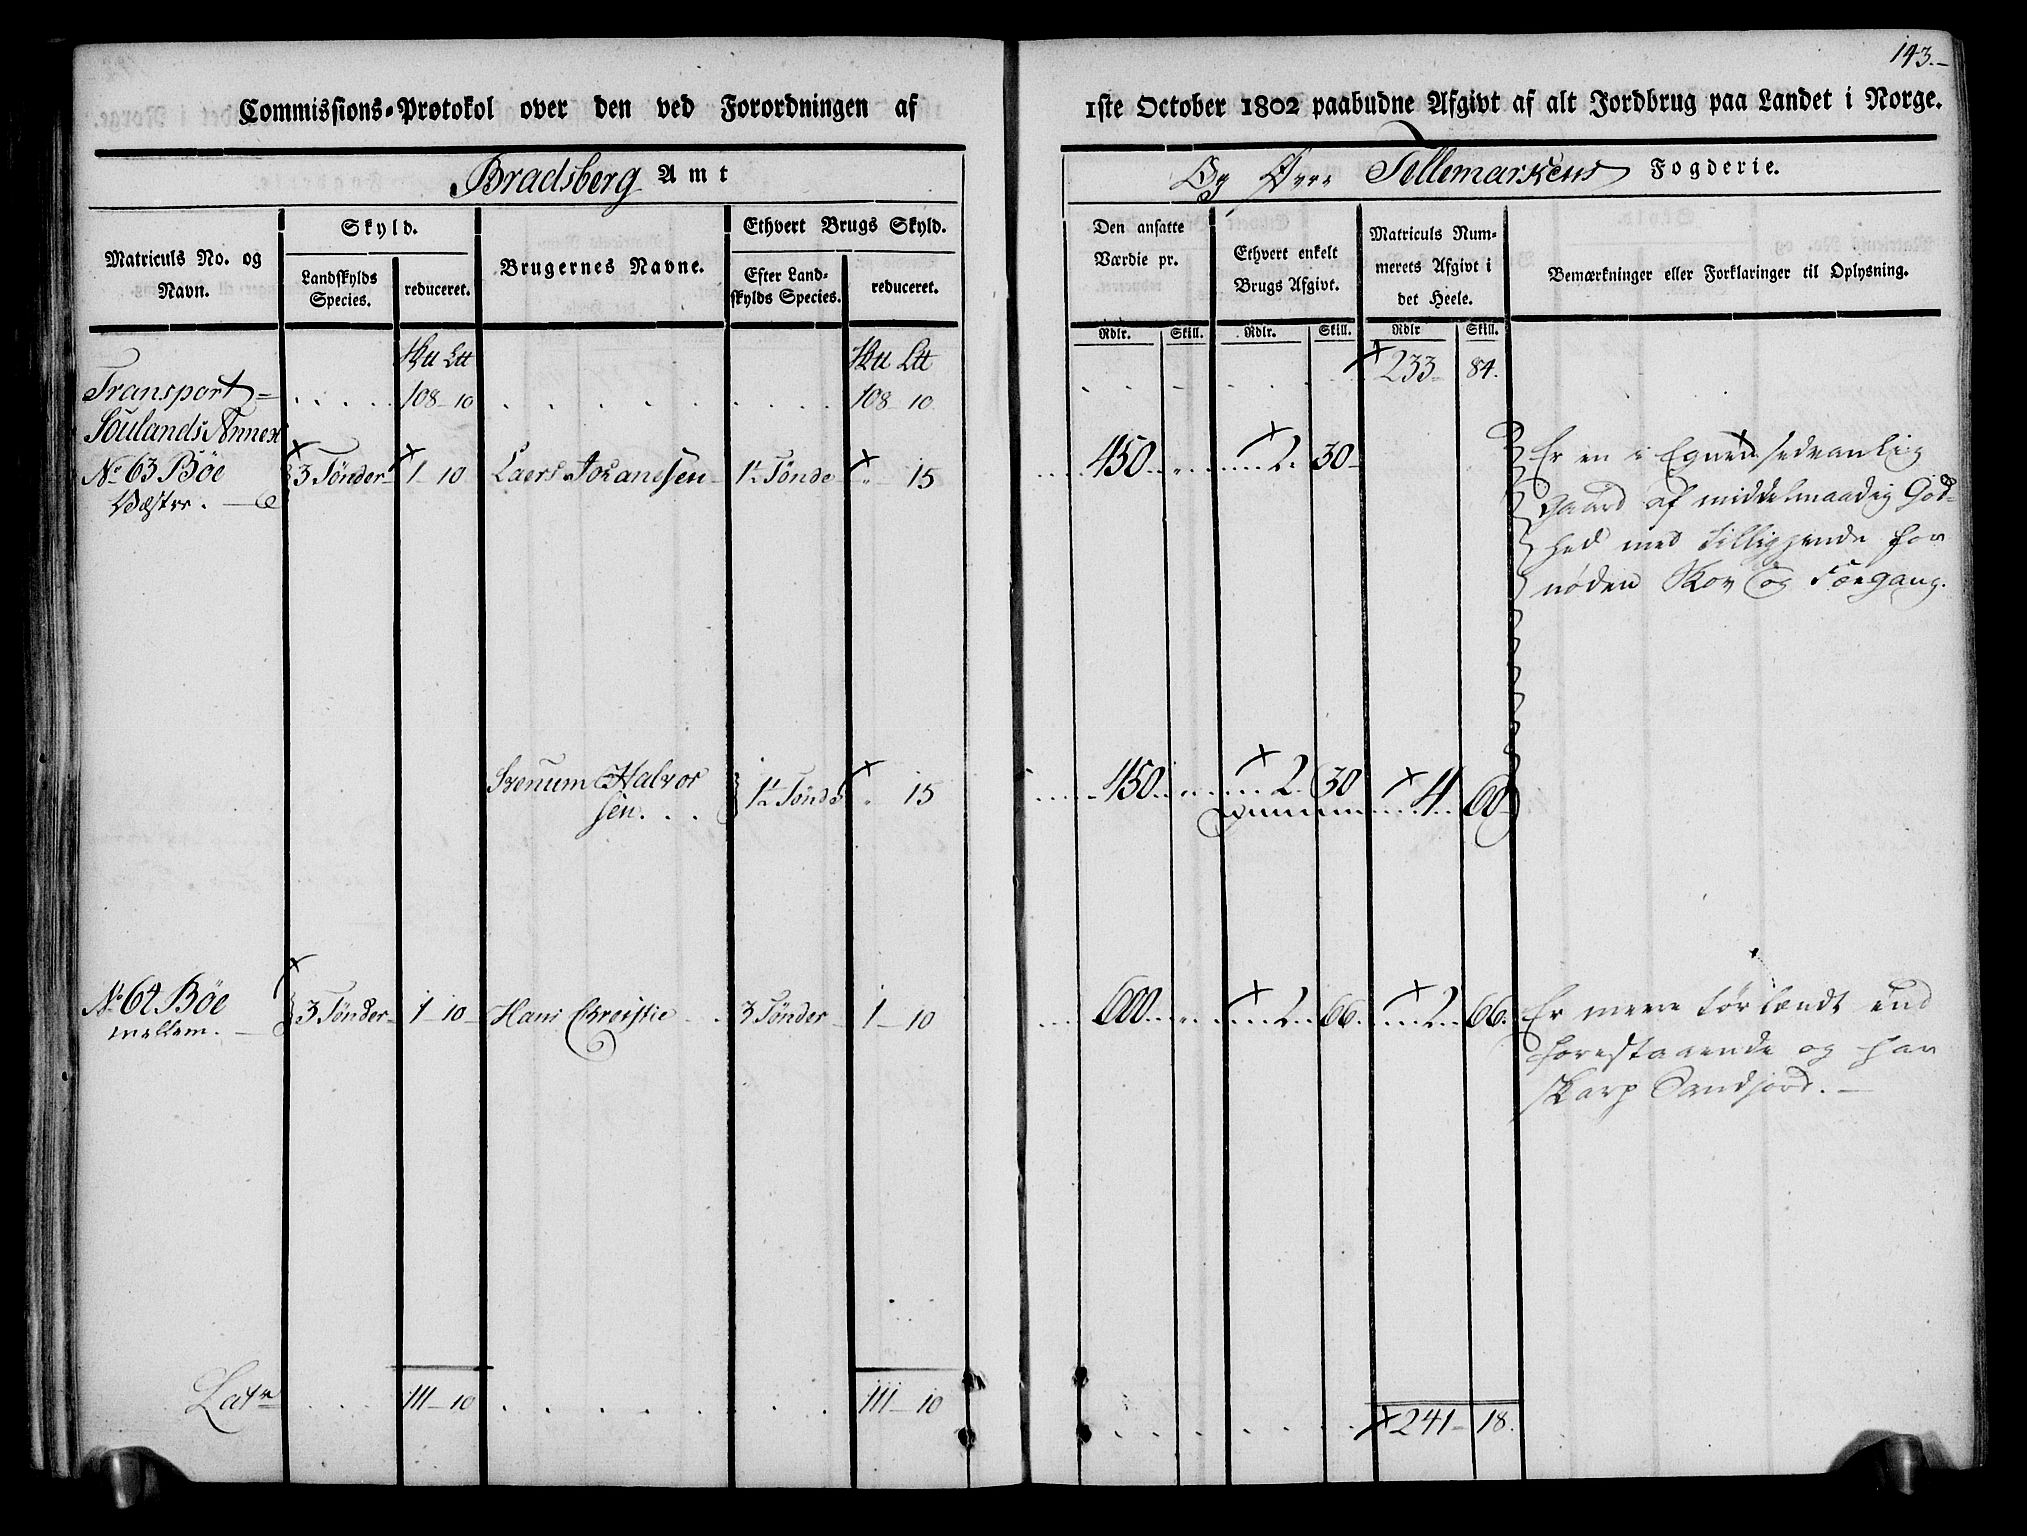 143.-
Commissions-Protokol over den ved Forordningen af
1ste October 1802 paabudne Afgivt af alt Jordbrug paa Landet i Norge.
Bradsberg Amt
Og Øvre Tellemarkens Fogderie.
Matriculs No. og Navn.
Skyld.
Landskylds Species.
reduceret.
Brugernes Navne.
Ethvert Brugs Skyld.
Efter Landskylds Species.
reduceret.
Den ansatte Værdie pr.
Ethvert enkelt Brugs Afgivt.
Matriculs Nummerets Afgivt i det Heele.
Bemærkninger eller Forklaringer til Oplysning.
Rdlr. Skill. Rdlr. Skill. Rdlr Skill.
Transport = . . . . 108 10 . . . . . . 108 10 . . . . 233 84.
Soulands Annex
No 63 Bøe 3 Tønder 1 10 Laers Johanesen 1½ Tønde " 15 450 " 2. 30
Væstre.
Er en i Egnen sedvanlig
Gaard af middelmaadig God-
hed med tilliggende for
nøden Skov og Fægang.
Svenum Halvor
sen. . . 1½ Tønde " 15 450 " 2. 30 4 60
No 64 Bøe 3 Tønder 1 10 Hans Christie 3 Tønder 1 10 600 " 2 66. 2 66.
mellem.
Er mere tørlændt end
forestaaende og har
skarp Sandjord.
Latr 111 10 . . . . 111 10 . . . . 241 18.